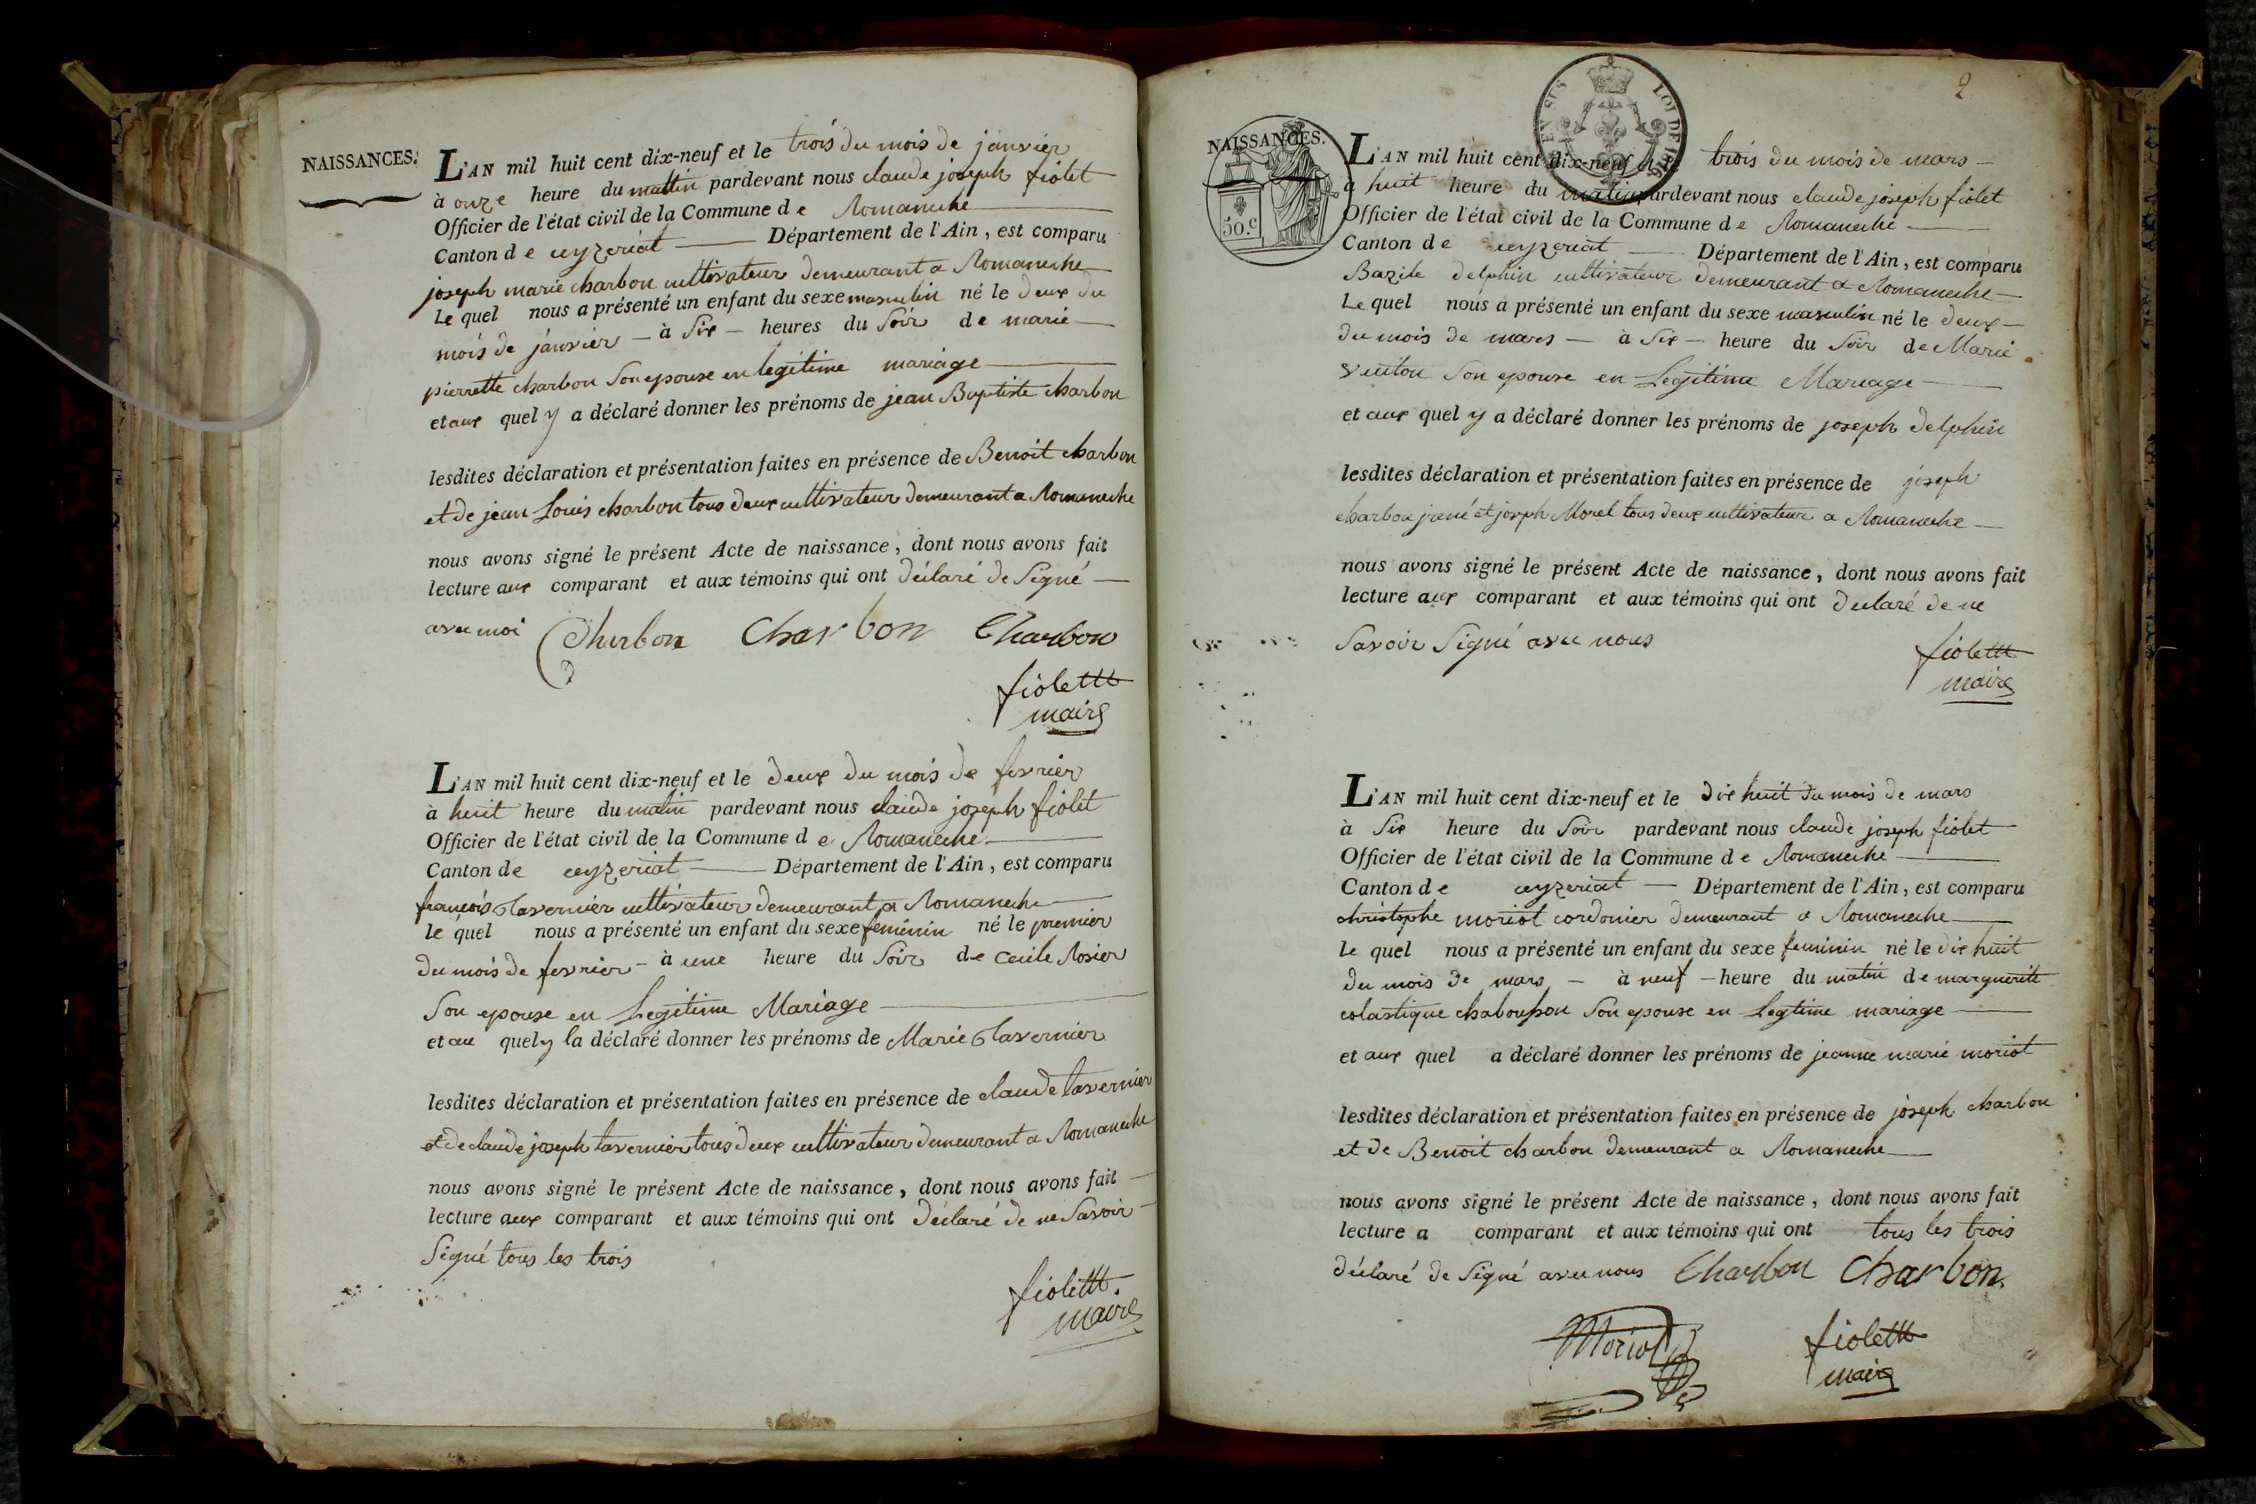 NAISSANCES.
L'AN mil huit cent dix-neuf et le trois du mois de janvier
à onze heure du mattin pardevant nous claude joseph fiolet
Officier de l'état civil de la Commune de Romaneche
Canton de ceyzeriat Département de l'Ain, est comparu
joseph marie charbon cultivateur demeurant a Romaneche
Le quel nous a présenté un enfant du sexe masculin né le deux du
mois de janvier - à Six - heures du Soir de marie
pierrette charbon Son epouse en legitime mariage
et aux quel y a déclaré donner les prénoms de jean Baptiste charbon
lesdites déclaration et présentation faites en présence de Benoit charbon
et de jean Louis charbon tous deux cultivateur demeurant a Romaneche
nous avons signé le présent Acte de naissance, dont nous avons fait
lecture aux comparant et aux témoins qui ont déclaré de Signé
avec moi Charbon Charbon Charbon
fiolett
maire
L'AN mil huit cent dix-neuf et le deux du mois de fevrier
à huit heure du matin pardevant nous claude joseph fiolet
Officier de l'état civil de la Commune de Romaneche
Canton de ceyzeriat Département de l'Ain, est comparu
francois tavernier cultivateur demeurant a Romaneche
le quel nous a présenté un enfant du sexe feminin né le premier
du mois de fevrier - à une heure du Soir de Cecile Rosier
Son epouse en Legitime Mariage
et au quel y la déclaré donner les prénoms de Marie tavernier
lesdites déclaration et présentation faites en présence de claude tavernier
et de claude joseph tavernier tous deux cultivateur demeurant a Romaneche
nous avons signé le présent Acte de naissance, dont nous avons fait
lecture aux comparant et aux témoins qui ont déclaré de ne Savoir
Signé tous les trois
fiolett
maire
2
LOI DE 1816
NAISSANCES.
50.c
L'AN mil huit cent dix-neuf et le trois du mois de mars
a huit heure du matin pardevant nous claude joseph fiolet
Officier de l'état civil de la Commune de Romaneche
Canton de ceyzeriat Département de l'Ain, est comparu
Bazile delphin cultivateur demeurant a Romaneche
Le quel nous a présenté un enfant du sexe masculin né le deux
du mois de mars - à Six - heure du Soir de Marie
Son epouse en Legitime Mariage
et aux quel y a déclaré donner les prénoms de joseph delphin
lesdites déclaration et présentation faites en présence de joseph
charbon et joseph Morel tous deux cultivateur a Romaneche
nous avons signé le présent Acte de naissance, dont nous avons fait
lecture aux comparant et aux témoins qui ont declaré de ne
Savoir Signé avec nous
fiolett
maire
L'AN mil huit cent dix-neuf et le dix huit du mois de mars
à Six heure du Soir pardevant nous claude joseph fiolet
Officier de l'état civil de la Commune de Romaneche
Canton de ceyzeriat Département de l'Ain, est comparu
christophe moriot cordonier demeurant a Romaneche
le quel nous a présenté un enfant du sexe feminin né le dix huit
du mois de mars - à neuf - heure du matin de marguerite
colastique Son epouse en Legtime mariage
et aux quel a déclaré donner les prénoms de jeanne marie moriot
lesdites déclaration et présentation faites en présence de joseph charbon
et de Benoit charbon demeurant a Romaneche
nous avons signé le présent Acte de naissance, dont nous avons fait
lecture a comparant et aux témoins qui ont tous les trois
déclaré de Signé avec nous Charbon Charbon
Moriot fiolett
maire